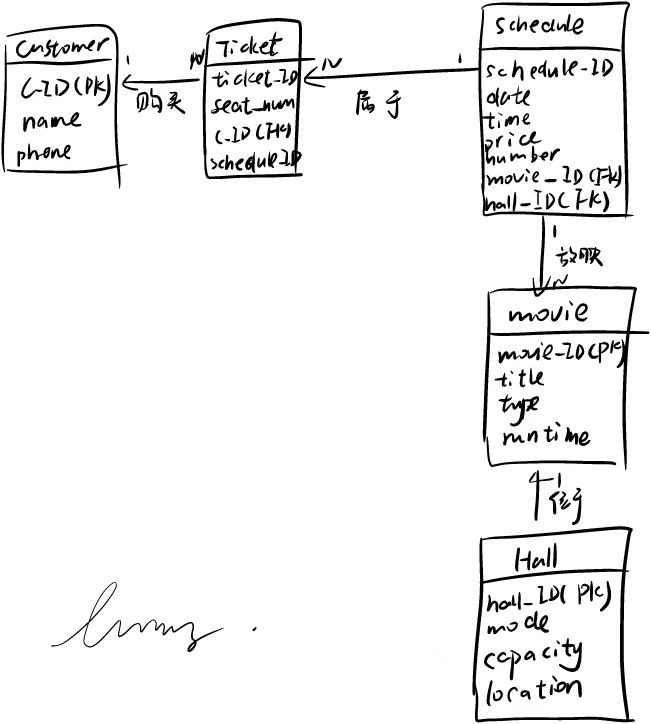 Customer
C-ID(PK)
name
phone
1
N
购买
Ticket
ticket_ID
seat_num
C_ID(FK)
schedule_ID
N
1
属于
Schedule
schedule-ID
date
time
price
number
movie_ID(FK)
hall_ID(FK)
1
放映
N
movie
movie-ID(PK)
title
type
runtime
1
位于
Hall
hall_ID(PK)
mode
capacity
location